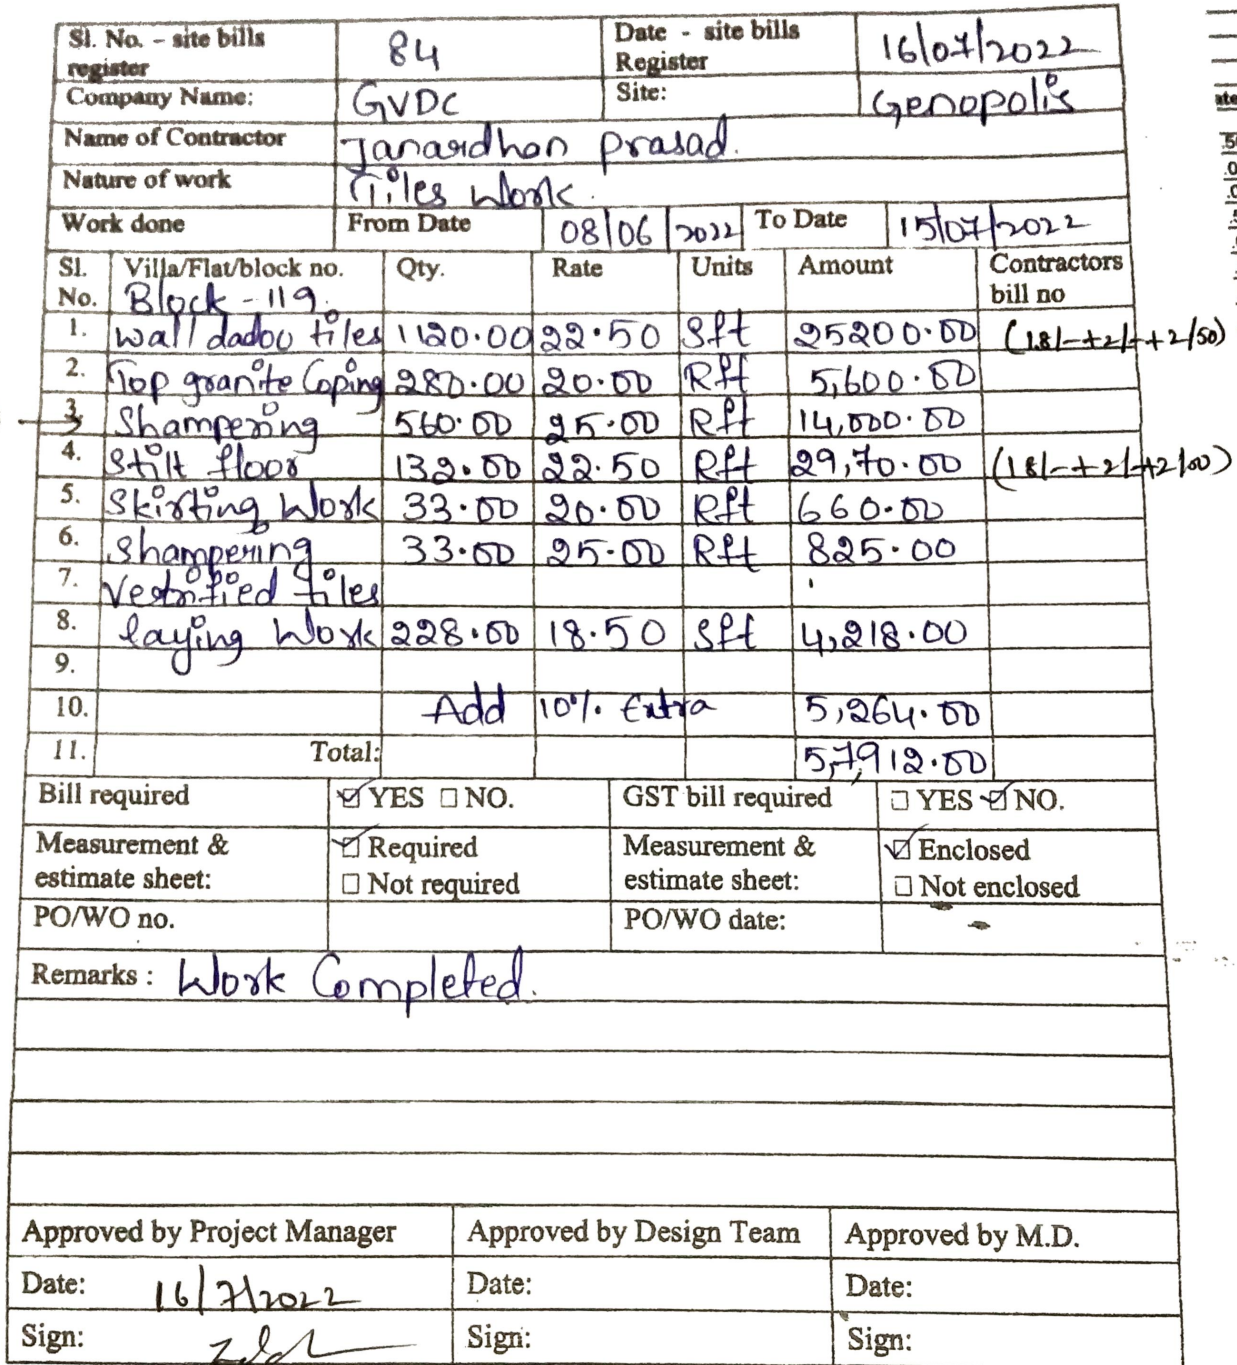 Sl. No. - site bills register 84 Date - site bills Register 16/07/2022
Company Name: GVDC Site: Genopolis
Name of Contractor Janardhan Prasad.
Nature of work Tiles Work.
Work done From Date 08/06/2022 To Date 15/07/2022
Sl. No. Villa/Flat/block no. Block - 119. Qty. Rate Units Amount Contractors bill no
1. Wall dadoo tiles 1120.00 22.50 Sft 25200.00 (18/-+2/-+2/50)
2. Top granite Coping 280.00 20.00 Rft 5,600.00
3. Shampering 560.00 25.00 Rft 14,000.00
4. Stilt floor 132.00 22.50 Rft 29,70.00 (18/-+2/-+2/00)
5. Skirting Work 33.00 20.00 Rft 660.00
6. Shampering 33.00 25.00 Rft 825.00
7. Vestrified tiles
8. laying Work 228.00 18.50 Sft 4,218.00
9.
10. Add 10% Extra 5,264.00
11. Total: 57,912.00
Bill required YES NO. GST bill required YES NO.
Measurement & estimate sheet: Required Not required Measurement & estimate sheet: Enclosed Not enclosed
PO/WO no. PO/WO date:
Remarks : Work Completed.
Approved by Project Manager Approved by Design Team Approved by M.D.
Date: 16/7/2022 Date: Date:
Sign: Sign: Sign: